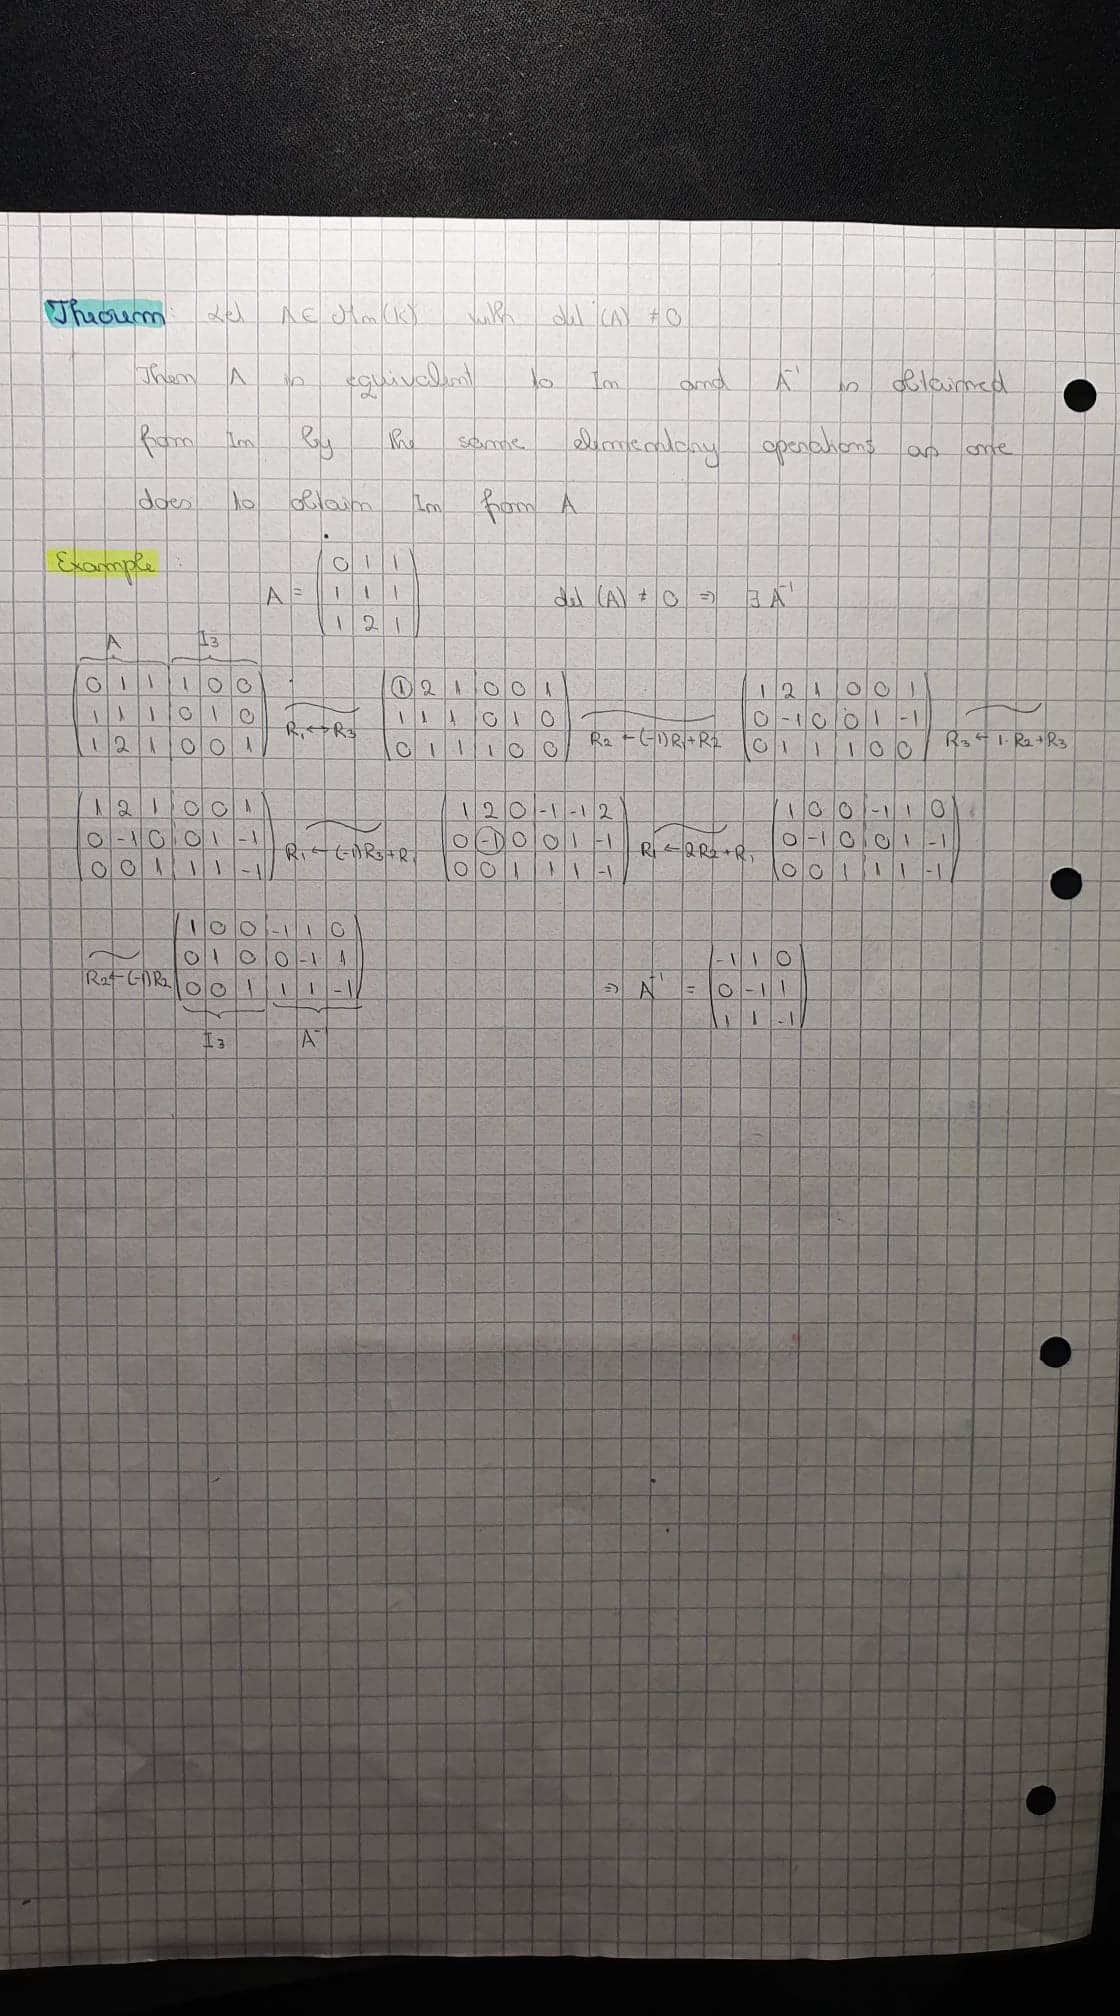 Theorem: Let A ∈ Mn(K) with det (A) ≠ 0
Then A is equivalent to In and A⁻¹ is obtained
from In by the same elementary operations as one
does to obtain In from A
Example :
A = (0 1 1
1 1 1
1 2 1)
det (A) ≠ 0 ⇒ ∃ A⁻¹
A I3
(0 1 1 | 1 0 0
1 1 1 | 0 1 0
1 2 1 | 0 0 1)
R1 ↔ R3
(1 2 1 | 0 0 1
1 1 1 | 0 1 0
0 1 1 | 1 0 0)
R2 ← (-1)R1+R2
(1 2 1 | 0 0 1
0 -1 0 | 0 1 -1
0 1 1 | 1 0 0)
R3 ← 1·R2+R3
(1 2 1 | 0 0 1
0 -1 0 | 0 1 -1
0 0 1 | 1 1 -1)
R1 ← (-1)R3+R1
(1 2 0 | -1 -1 2
0 -1 0 | 0 1 -1
0 0 1 | 1 1 -1)
R1 ← 2R2+R1
(1 0 0 | -1 1 0
0 -1 0 | 0 1 -1
0 0 1 | 1 1 -1)
R2 ← (-1)R2
(1 0 0 | -1 1 0
0 1 0 | 0 -1 1
0 0 1 | 1 1 -1)
I3 A⁻¹
⇒ A⁻¹ = (-1 1 0
0 -1 1
1 1 -1)